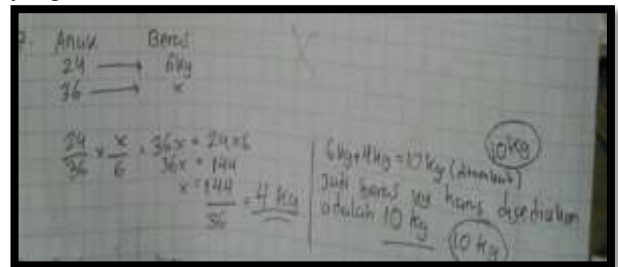 7. Anak Beras
24 → 6kg
36 → x
24/36 × x/6 = 36x = 24×6
36x = 144
x = 144/36 = 4 kg
6kg+4kg = 10kg (ditambah)
Jadi beras yg harus disediakan
adalah 10 kg
10kg
10 kg